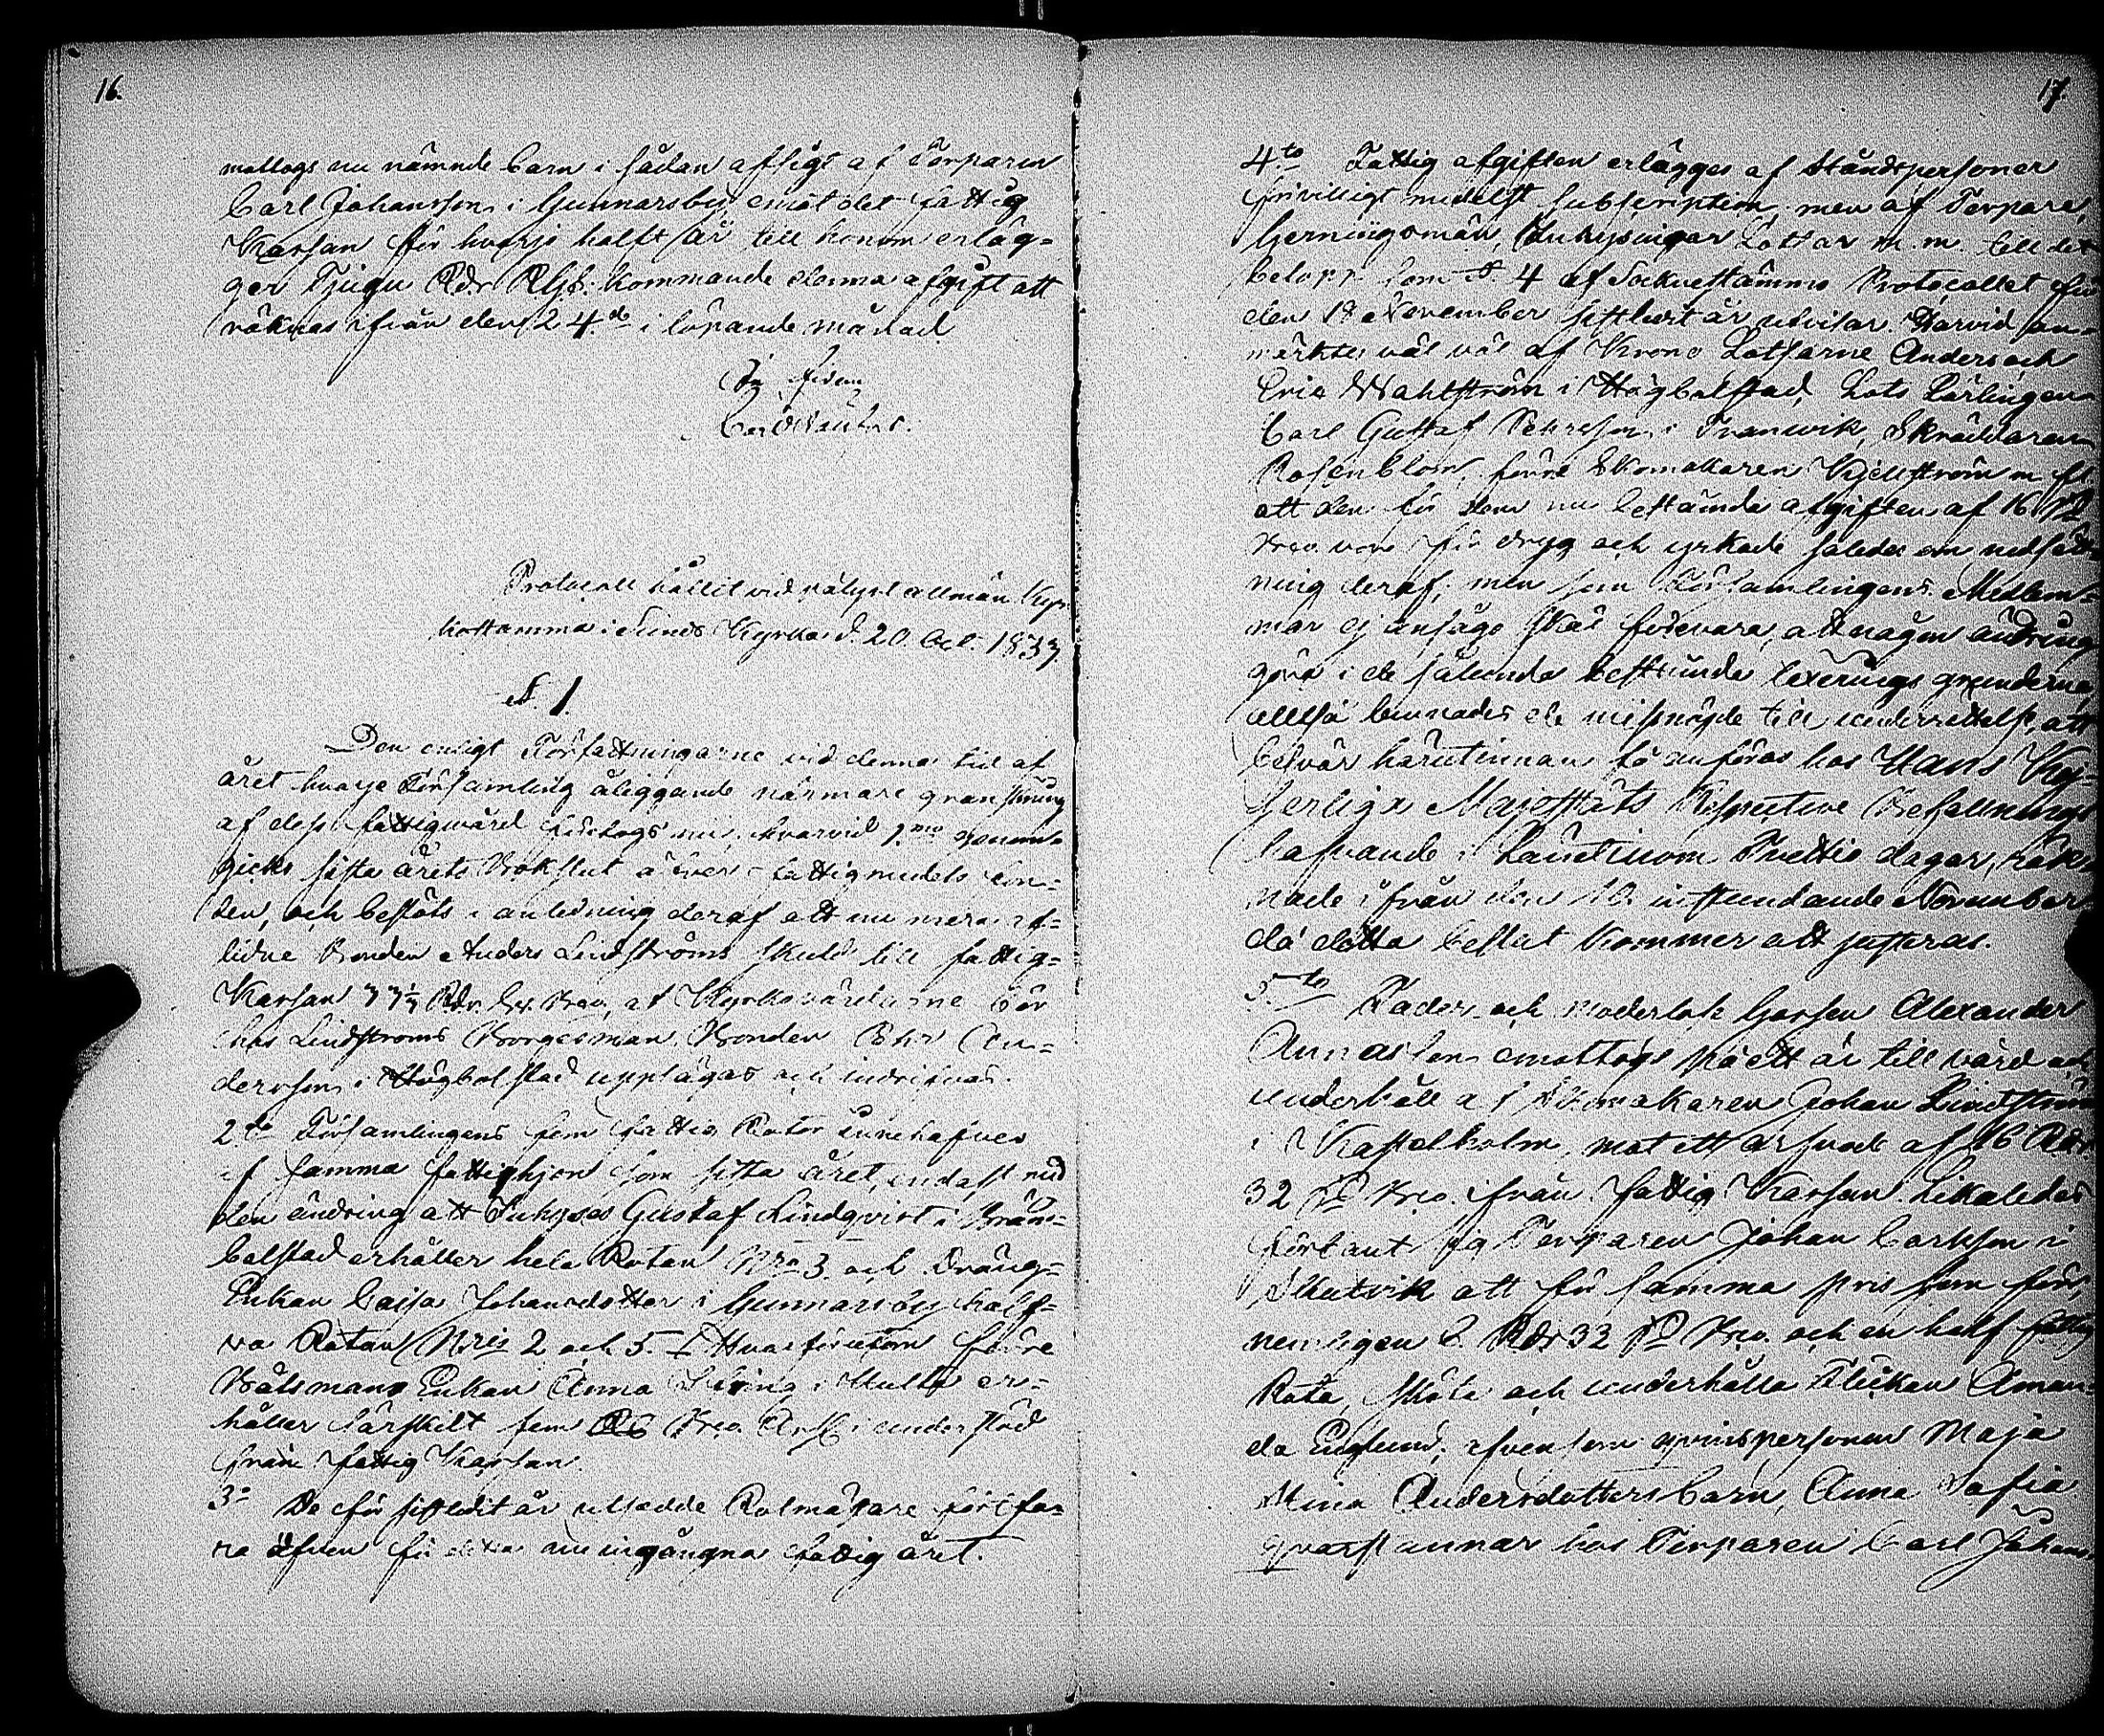 16.
mottogs nu nämnde barn i sådan afsigt af Torparen
Carl Johansson i Gunnarsby, emot det Fattig
Kassan för hvarje halft år till honom erläg-
ger Tjugu Rdr Rgs. kommande denna afgift att
räknas ifrån den 24.de i löpande månad.
In fidem
Protocoll hållit vid pålyst allmän Kyr-
kostämma i Sunds Kyrka d. 20. Oct. 1833.
§. 1.
Den enligt Författningarne vid denna tid af
året hvarje Församling åliggande närmare granskning
af dess fattigvård företogs nu, hvarvid 1.mo genom-
gicks sista årets Bokslut öfver fattigmedels fon-
den, och beslöts i anledning deraf att nu mera af-
lidne Bonden Anders Lindströms skuld till fattig-
Kassan Rdr. Bco, af Kyrkovärdarne bör
hos Lindströms Borgesman Bonden Pehr An-
dersson i Högbolstad uppsägas och indrifvas.
2.do Församlingens fem fattig Rotor innehafves
af samma fattighjon som sista året, endast med
den ändring att Inhyses Gustaf Lindqvist i Bräns-
bolstad erhåller hela Rotan N:ro 3. och Dräng-
Enkan Caisa Johansdotter i Gunnarsby half-
va Rotan N:ris 2 och 5. Hvarförutom förre
Båtsmans Enkan Anna i Hulta er-
håller särskilt fem Rd Bco. Arl. i understöd
från fattig Kassan.
3:o De för sistledit år utsedde Rotmästare fortfa-
ra äfven för detta nu ingångna fattig året.
17.
4.to Fattig afgiften erlägges af Ståndspersoner
frivilligt medelst subscription, men af Torpare,
Gerningsmän, Inhysingar Lotsar m. m. till det
belopp som §. 4 af Sockenstämmo Protocollet för
den November sistledit år utvisar. Härvid an-
märktes väl väl af Krono Lotsarne Anders och
Eric Wahlström i Högbolstad, Lots Lärlingen
Carl Gustaf Pehrsson i Tranvik, Skräddaren
Rosenblom, förre Skomakaren Kjellström m. fl.
att den för dem nu bestämda afgiften af 16 sk
Bco. vore för dryg och yrkade således om nedsätt-
ning deraf; men som Församlingens Medlem-
mar ej ansågo skäl förevara, att någon ändring
göra i de sålunda bestämda taxerings grunderna,
alltså lemnades de missnöjde till underrättelse, att
besvär härutinnan få anföras hos Hans Kej-
serliga Majestäts Respective Befallnings
hafvande i Länet inom Trettio dagar, räk-
nade ifrån den 10. instundande November
då detta beslut kommer att justeras.
5.to Fader- och moderlösa Gossen Alexander
Annasson emottogs på ett år till vård och
underhåll af Skomakaren Johan Lindström
i Kastelholm, mot ett arfvode af 16 Rdr
32 sk Bco. ifrån fattig Kassan. Likaledes
förband sig Torparen Johan Carlsson i
Skutvik att för samma pris som förr,
nemligen 6. Rdr 32 sk Bco. och en half fattig
Rota, sköta och underhålla Flickan Aman-
da Englund; äfvensom qvinspersonen Maja
Stina Andersdotters barn, Anna Sofia
qvarstannar hos Torparen Carl Johans-